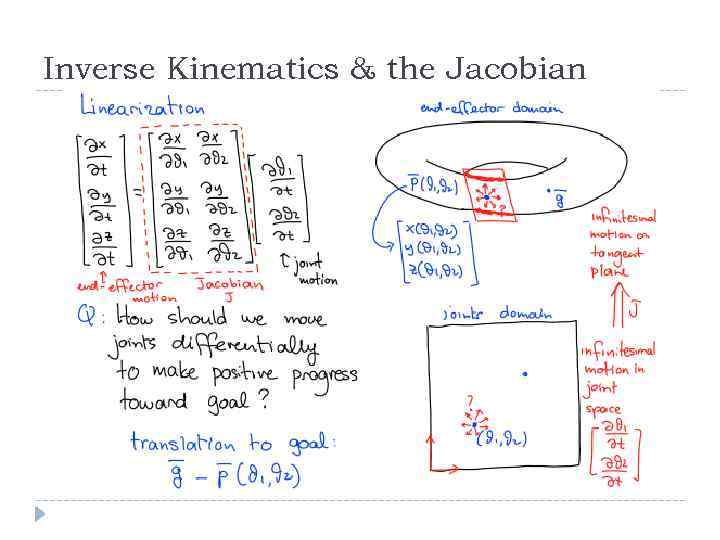 Inverse Kinematics & the Jacobian
Linearization
∂x/∂t ∂x/∂ϑ₁ ∂x/∂ϑ₂ ∂ϑ₁/∂t
∂y/∂t = ∂y/∂ϑ₁ ∂y/∂ϑ₂ ∂ϑ₂/∂t
∂z/∂t ∂z/∂ϑ₁ ∂z/∂ϑ₂
end-effector motion
Jacobian
J
joint
motion
Q: How should we move
joints differentially
to make positive progress
toward goal?
translation to goal:
g̅ - p̅(ϑ₁,ϑ₂)
end-effector domain
p̅(ϑ₁,ϑ₂)
?
g̅
x(ϑ₁,ϑ₂)
y(ϑ₁,ϑ₂)
z(ϑ₁,ϑ₂)
infinitesmal
motion on
tangent
plane
J
joints domain
?
(ϑ₁,ϑ₂)
infinitesmal
motion in
joint
space
∂ϑ₁/∂t
∂ϑ₂/∂t